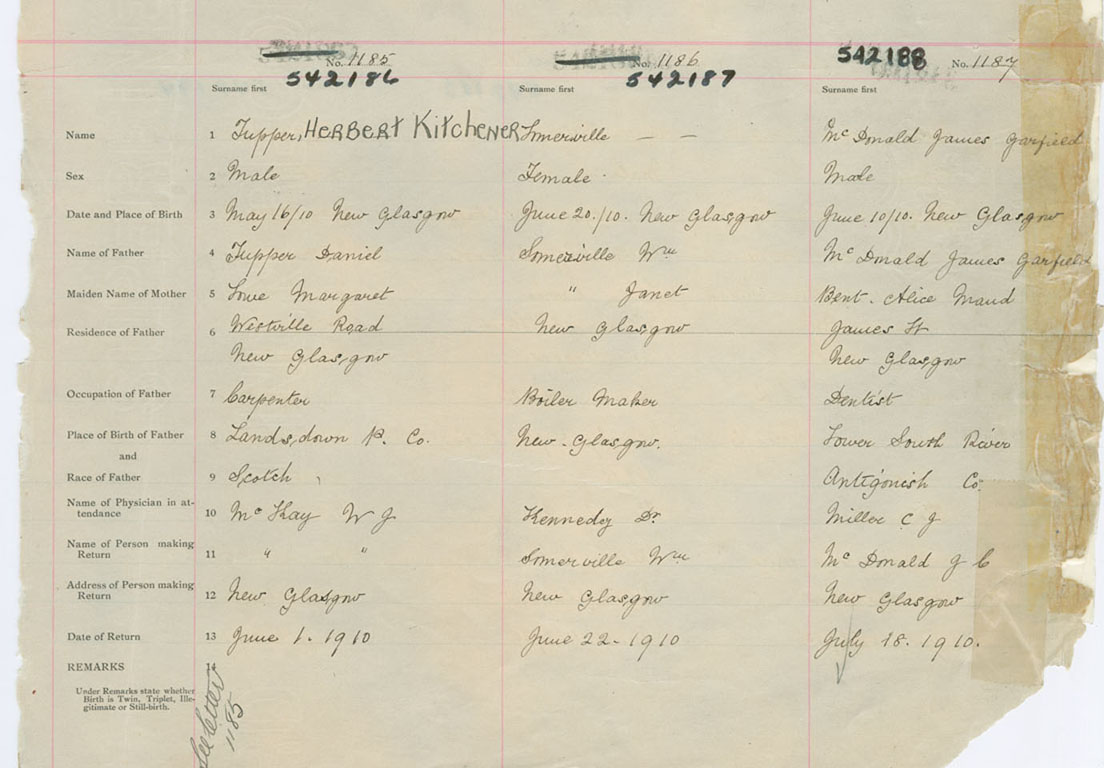 No. 1185 No. 1186 542188 No. 1187
542186 542187
Surname first Surname first Surname first
Name 1 Tupper, Herbert Kitchener Somerville — — Mc Donald James Garfield
Sex 2 Male Female Male
Date and Place of Birth 3 May 16/10 New Glasgow June 20./10. New Glasgow June 10/10. New Glasgow
Name of Father 4 Tupper Daniel Somerville Wm Mc Donald James Garfield
Maiden Name of Mother 5 Lowe Margaret " Janet Bent. Alice Maud
Residence of Father 6 Westville Road New Glasgow James St
New Glasgow New Glasgow
Occupation of Father 7 Carpenter Boiler Maker Dentist
Place of Birth of Father 8 Landsdown P. Co. New Glasgow. Lower South River
and
Race of Father 9 Scotch Antigonish Co.
Name of Physician in at-
tendance 10 Mc Kay W J Kennedy Dr Miller C J
Name of Person making
Return 11 " " Somerville Wm Mc Donald J G
Address of Person making
Return 12 New Glasgow New Glasgow New Glasgow
Date of Return 13 June 1. 1910 June 22 - 1910 July 18. 1910.
REMARKS 14
Under Remarks state whether
Birth is Twin, Triplet, Ille-
gitimate or Still-birth.
See letter
1185